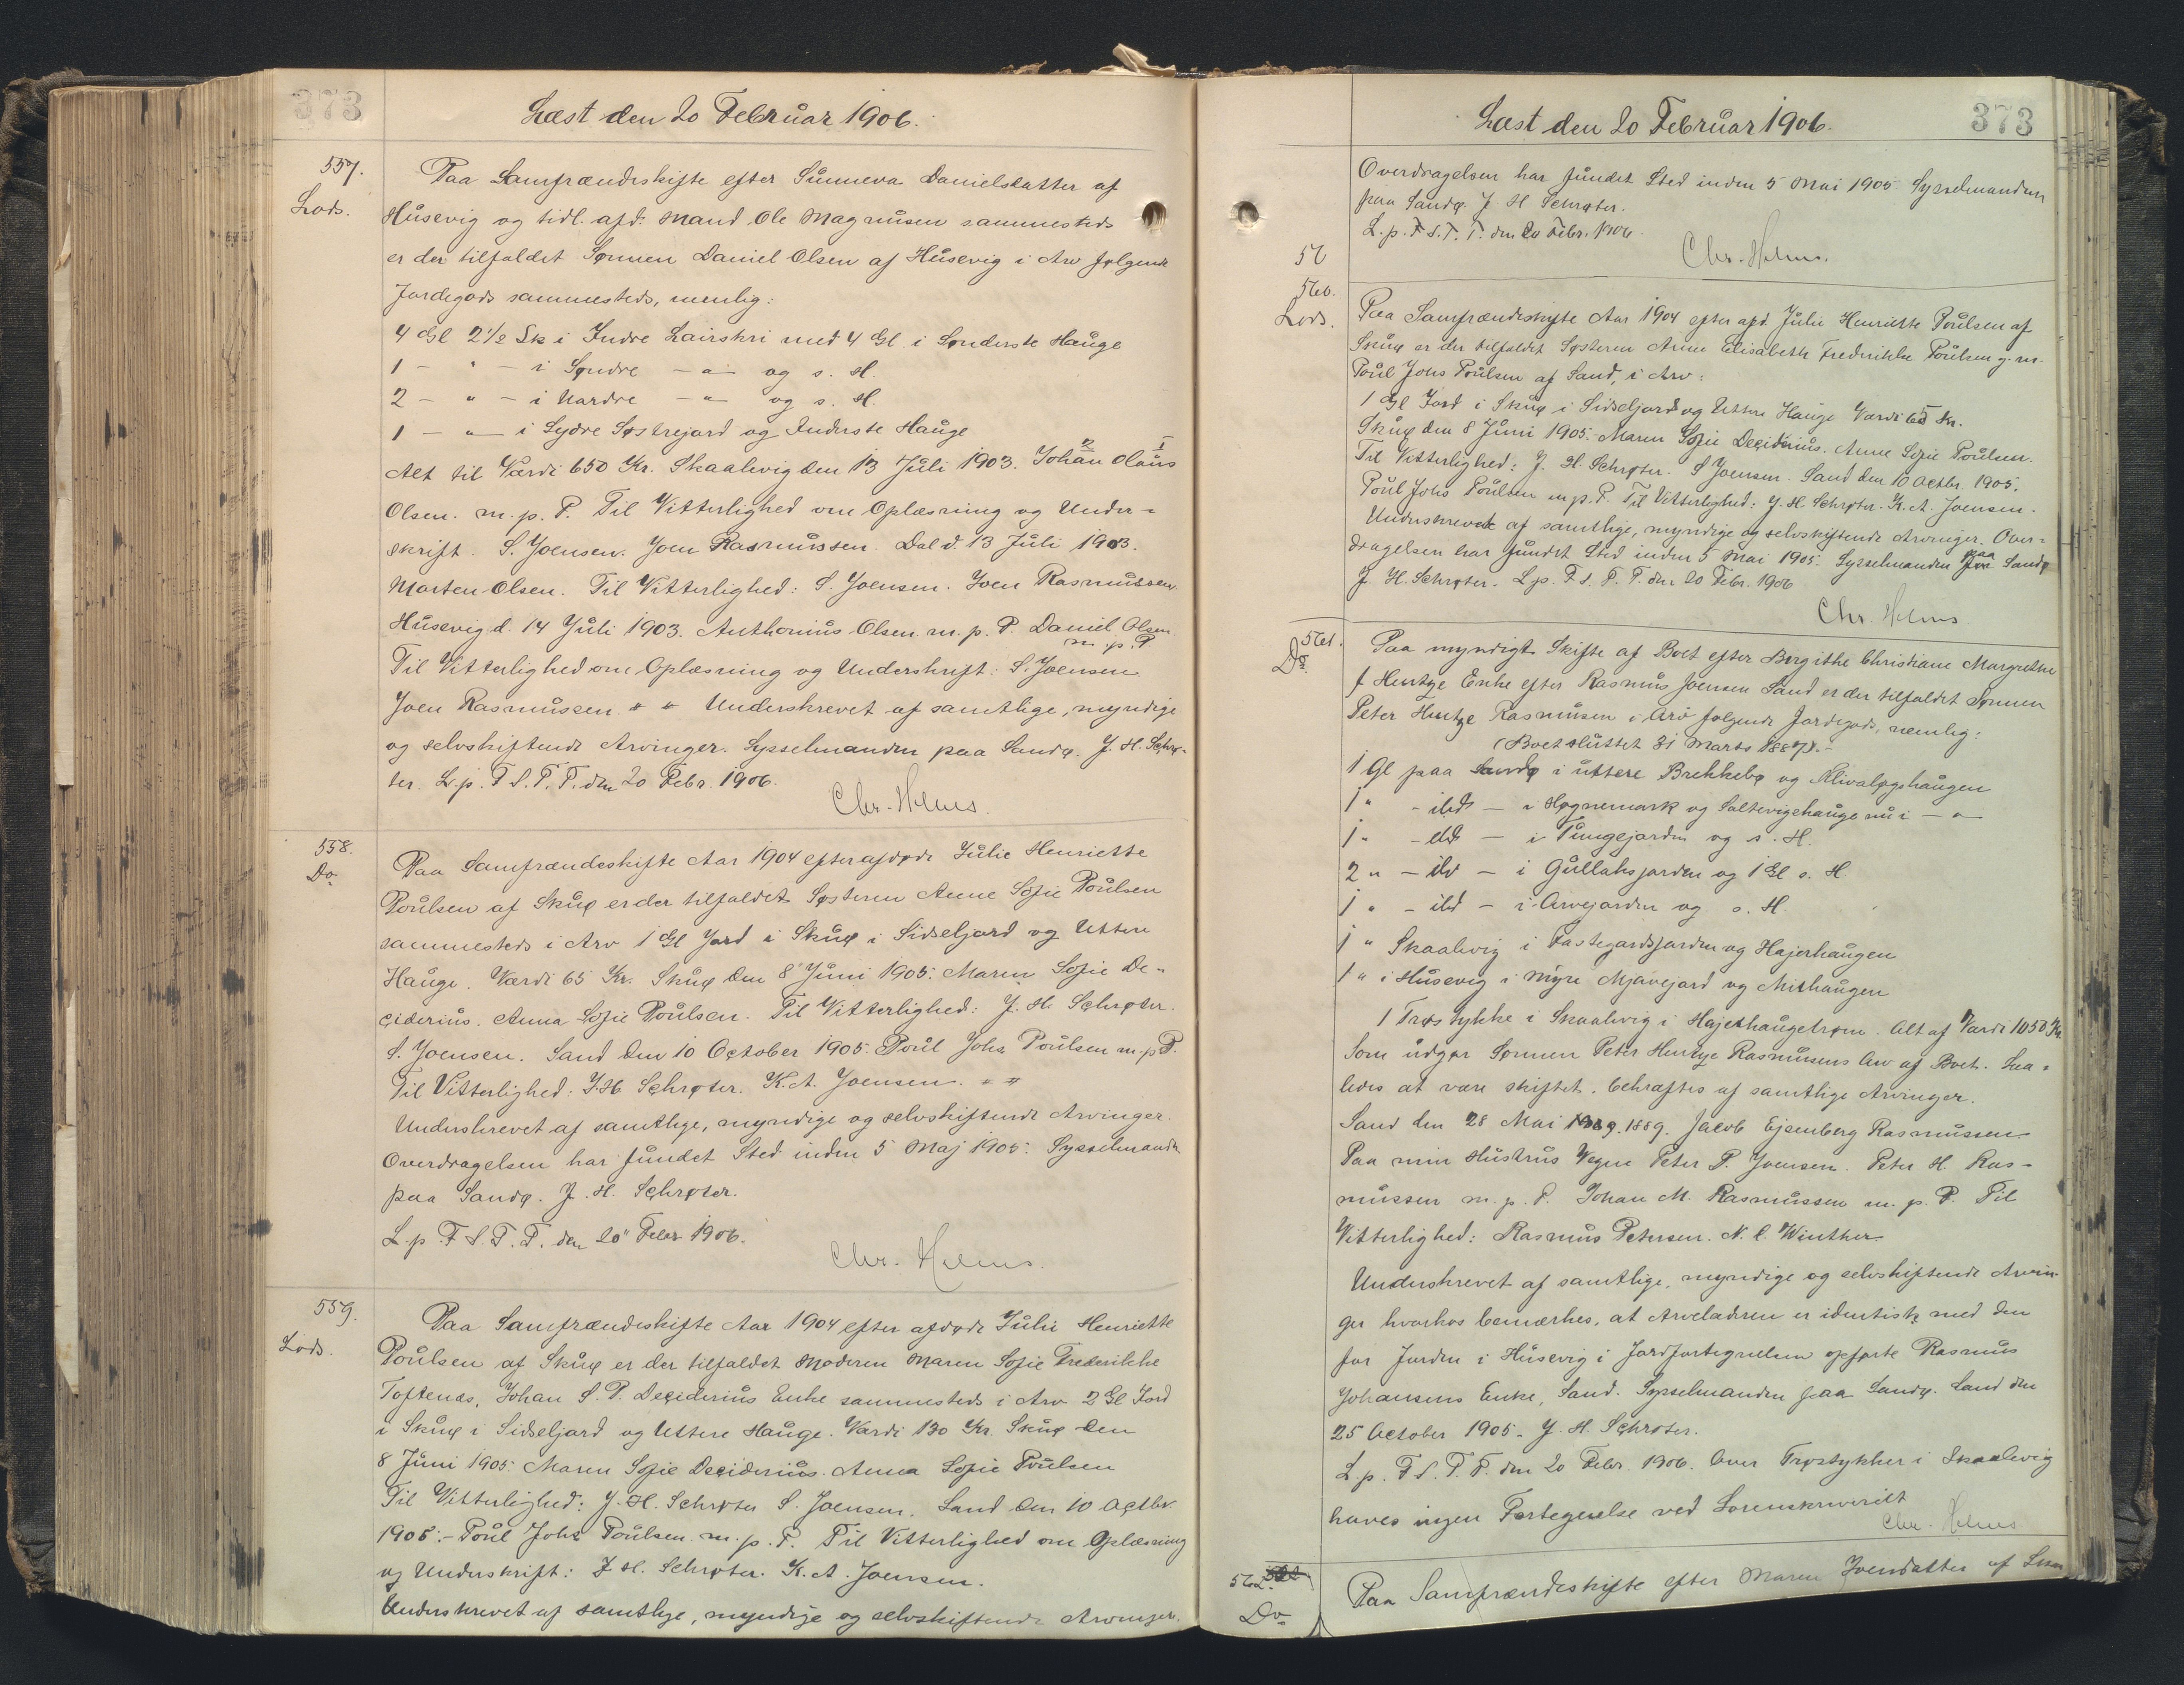 373
Læst den 20 Februar 1906.
557.
Lods.
Paa Samfrændeskifte efter Sunneva Danielsdatter af
Husevig og tidl. afd. Mand Ole Magnusen sammesteds
er der tilfaldet Sønnen Daniel Olsen af Husevig i Arv følgende
Jordegods sammesteds, nemlig:
4 Gl 2 1/2 Sk i Indre Lairskri med 4 Gl i Sønderste Hauge
1 — " — i Søndre — " — og s. H.
2 — " — i Nordre — " — og s. H.
1 — " — i Sydre Søstrejord og Inderste Hauge
Alt til Værdi 650 Kr. Skaalevig den 13 Juli 1903. Johan Olaus
Olsen. m. p. P. Til Vitterlighed om Oplæsning og Under-
skrift. S. Joensen. Joen Rasmussen. Dal d. 13 Juli 1903.
Morten Olsen. Til Vitterlighed: S. Joensen. Joen Rasmussen
Husevig d. 14 Juli 1903. Anthonius Olsen m. p. P. Daniel Olsen
m. p. P
Til Vitterlighed om Oplæsning og Underskrift: S. Joensen
Joen Rasmussen. " " Underskrevet af samtlige, myndige
og selvskiftende Arvinger. Sysselmanden paa Sandø. J. H. Schrø-
ter. L. p. F S. T. P. den 20 Febr. 1906.
Chr. Helms.
558.
Do
Paa Samfrændeskifte Aar 1904 efter afdøde Julie Henriette
Poulsen af Skuø er der tilfaldet Søsteren Anne Sofie Poulsen
sammesteds i Arv 1 Gl Jord i Skuø i Sidseljord og Uttere
Hauge. Værdi 65 Kr. Skuø den 8 Juni 1905. Maren Sofie De-
ciderius. Anna Sofie Poulsen. Til Vitterlighed: J. H. Schrøter.
S. Joensen. Sand den 10 October 1905. Poul Johs Poulsen m. p P.
Til Vitterlighed: J. H. Schrøter. K. A. Joensen. " "
Underskrevet af samtlige, myndige og selvskiftende Arvinger.
Overdragelsen har fundet Sted inden 5 Maj 1905. Sysselmanden
paa Sandø. J. H. Schrøter.
L. p F S. T. P. den 20 Febr 1906.
Chr. Helms.
559.
Lods.
Paa Samfrændeskifte Aar 1904 efter afdøde Julie Henriette
Poulsen af Skuø er der tilfaldet Moderen Maren Sofie Frederikke
Toftenæs, Johan S. P. Deciderius Enke sammesteds i Arv 2 Gl Jord
i Skuø i Sidseljord og Uttere Hauge. Værdi 130 Kr. Skuø den
8 Juni 1905. Maren Sofie Deciderius. Anna Sofie Poulsen
Til Vitterlighed: J. H. Schrøter S. Joensen. Sand den 10 Octbr.
1905. — Poul Johs Poulsen. m. p. P. Til Vitterlighed om Oplæsning
og Underskrift: J H. Schrøter. K. A. Joensen.
Underskrevet af samtlige, myndige og selvskiftende Arvinger.
Læst den 20 Februar 1906.
373
Overdragelsen har fundet Sted inden 5 Mai 1905. Sysselmanden
paa Sandø. J. H Schrøter.
L. p. F S. T. P. den 20 Febr. 1906.
Chr. Helms.
56
560.
Lods.
Paa Samfrændeskifte Aar 1904 efter afd. Julie Henriette Poulsen af
Skuø er der tilfaldet Søsteren Anne Elisabeth Frederikke Poulsen g. m.
Poul Johs Poulsen af Sand, i Arv:
1 Gl Jord i Skuø i Sidseljord og Uttere Hauge Værdi 65 Kr.
Skuø den 8 Juni 1905. Maren Sofie Deciderius. Anne Sofie Poulsen.
Til Vitterlighed: J. H. Schrøter. S Joensen. Sand den 10 Octbr. 1905.
Poul Johs Poulsen m. p. P. Til Vitterlighed: J. H Schrøter. K. A. Joensen.
Underskrevet af samtlige, myndige og selvskiftende Arvinger. Over-
dragelsen har fundet Sted inden 5 Mai 1905. Sysselmanden paa Sandø
J. H. Schrøter. L. p. F S. T. P. den 20 Febr. 1906
Chr. Helms
561.
Do
Paa myndigt Skifte af Boet efter Birgithe Christiane Margrethe
f Hentze Enke efter Rasmus Joensen Sand er der tilfaldet Sønnen
Peter Hentze Rasmusen i Arv følgende Jordegods, nemlig:
(Boet sluttet 31 Marts 1887). —
1 Gl paa Sandø i uttere Brekkebø og Klivaløgshaugen
1 " — ibd — i Høgnemark og Saltevigehauge nu i — " —
1 " — ibd — i Tungejorden og s. H.
2 " — ibd — i Gullaksjorden og 1 Gl s. H
1 " — ibd — i Arvejorden og s. H.
1 " Skaalevig i Fastegardsjorden og Hajerhaugen
1 " i Husevig i Myre Mjavejord og Mithaugen
1 Trøstykke i Skaalevig i Hajerhaugetrøen. Alt af Værdi 1050 Kr.
Som udgør Sønnen Peter Hentze Rasmusens Arv af Boet. Saa-
ledes at være skiftet. bekræftes af samtlige Arvinger.
Sand den 28 Mai 1889. Jacob Ejsenberg Rasmussen
Paa min Hustrus Vegne Peter P. Joensen. Peter H. Ras-
mussen m. p. P. Johan M. Rasmussen m. p. P. Til
Vitterlighed: Rasmus Petersen. N. C. Winther
Underskrevet af samtlige, myndige og selvskiftende Arvin-
ger hvorhos bemærkes, at Arveladeren er identisk med den
for Jorden i Husevig i Jordfortegnelsen opførte Rasmus
Johansens Enke, Sand. Sysselmanden paa Sandø. Sand den
25 October 1905. J. H. Schrøter.
L. p. F S. T. P. den 20 Febr. 1906. Over Trøstykker i Skaalevig
haves ingen Fortegnelse ved Sorenskriveriet
Chr. Helms
562.
Do
Paa Samfrændeskifte efter Maren Joensdatter af